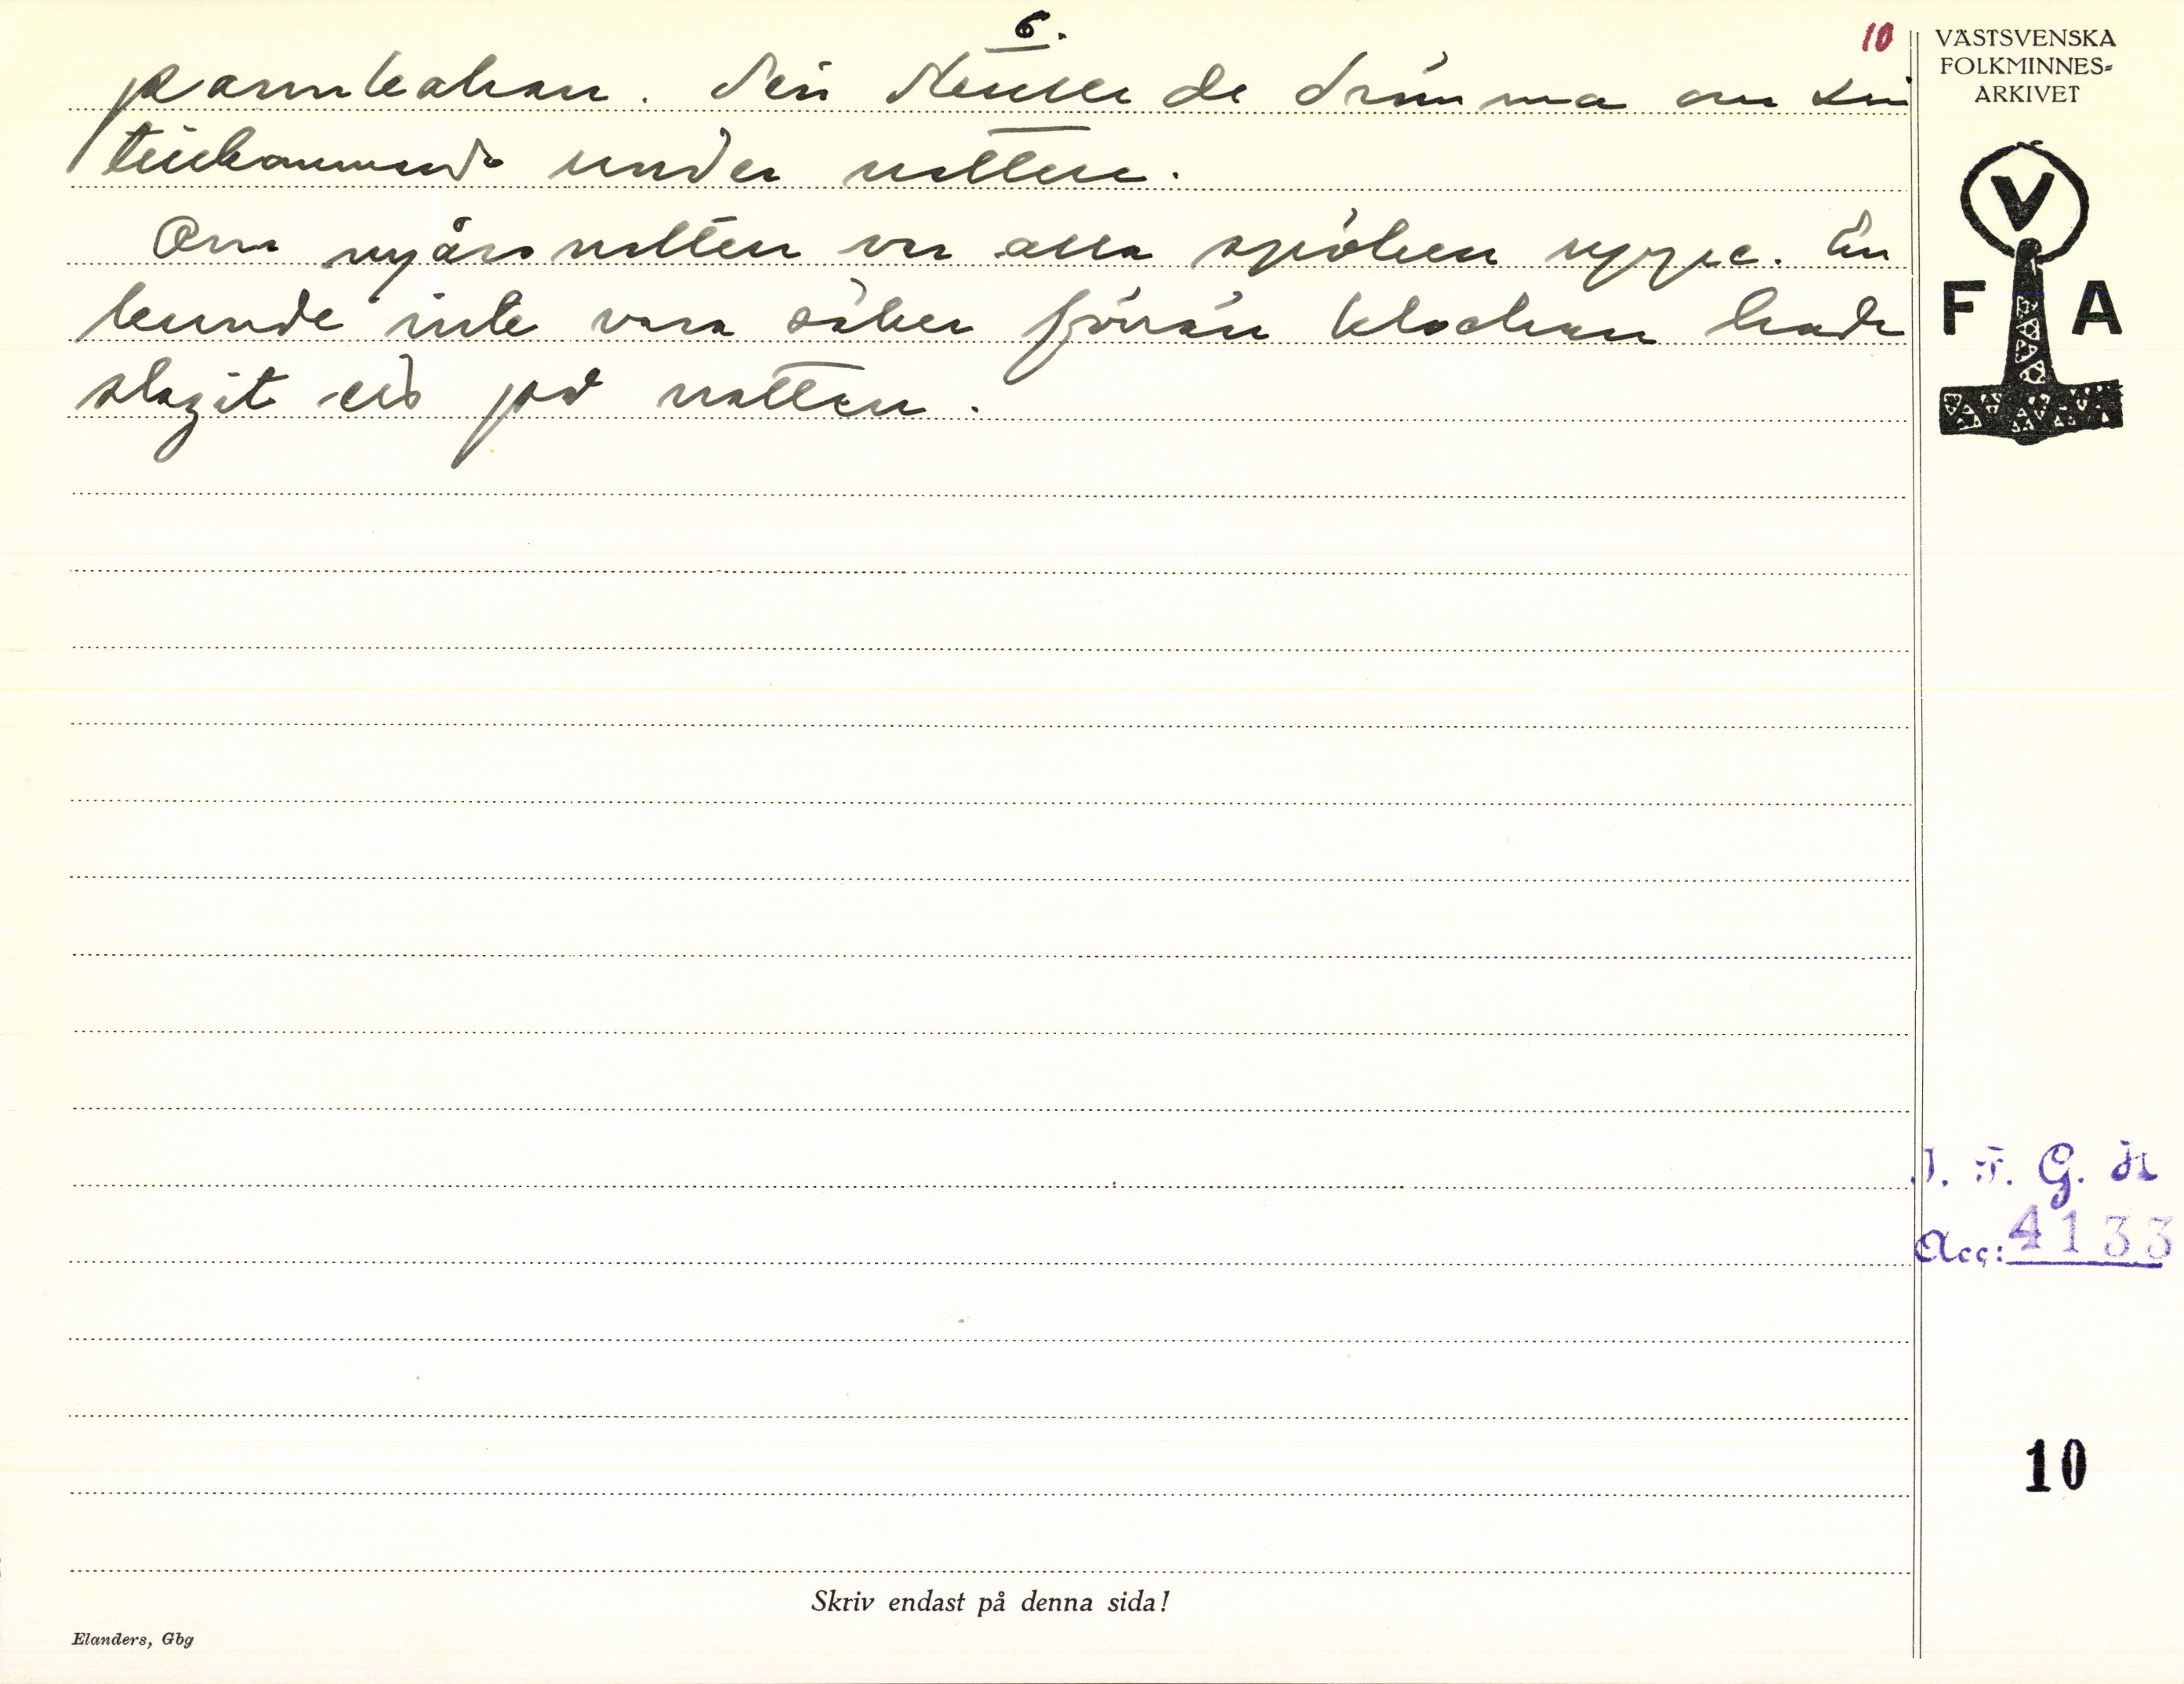 6.
10
pannkakan. Sen skulle de drömma om sin
tillkommande under natten.
Om nyårsnatten var alla spöken uppe. En
kunde inte vara säker förrän klockan hade
slagit ett på natten.
VÄSTSVENSKA
FOLKMINNES-
ARKIVET
V
F A
I. F. G. H
Acc: 4133
10
Skriv endast på denna sida!
Elanders, Gbg